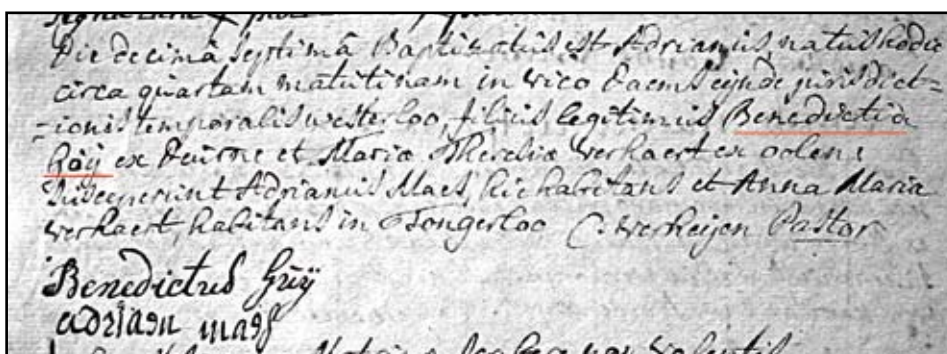 Die decimâ septimâ Baptizatus est Adrianus, natus hodie
circa quartam matutinam in vico Daems eijnde jurisdict=
=ionis temporalis westerloo, filius legitimus Benedictia
ex Deurne et Maria Theresia Verhaert ex oolen:
Susceperunt Adrianus Maes, hic habitans et Anna Maria
verhaert, habitans in Tongerloo C: Verheijen Pastor
Benedictus Grüÿ
adriaen maes